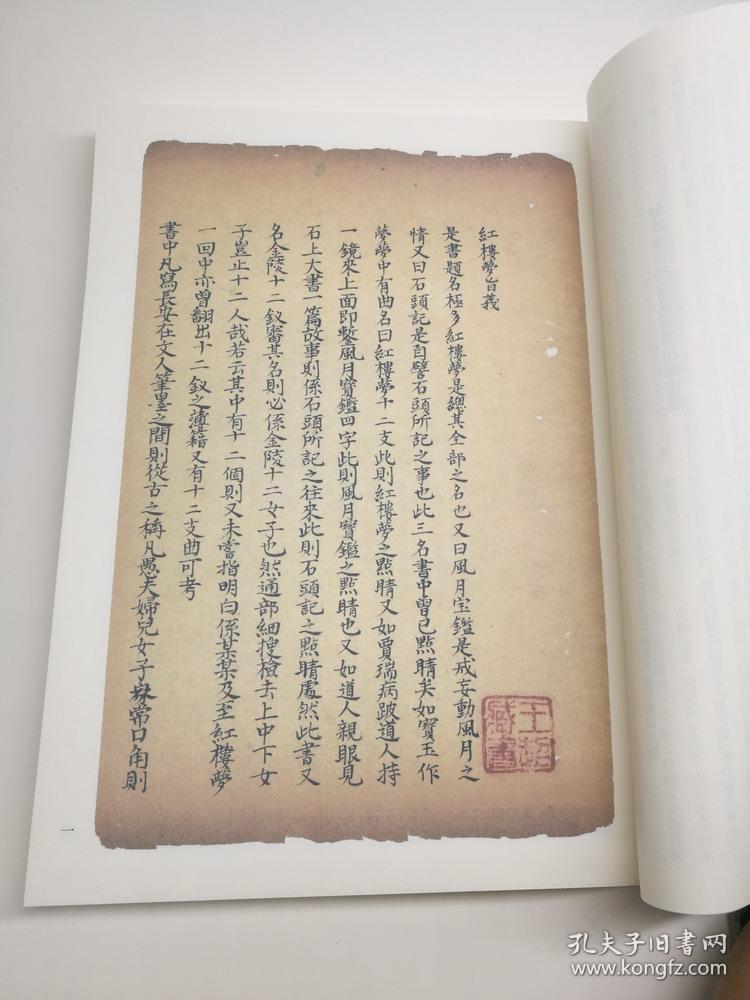 紅樓夢旨義
是書題名極多紅樓夢是總其全部之名也又曰風月宝鑑是戒妄動風月之
情又曰石頭記是自譬石頭所記之事也此三名書中曾已點睛矣如寶玉作
夢夢中有曲名曰紅樓夢十二支此則紅樓夢之點睛又如賈瑞病跛道人持
一鏡來上面即鏨風月寶鑑四字此則風月寶鑑之點睛也又如道人親眼見
石上大書一篇故事則係石頭所記之往來此則石頭記之點睛處然此書又
名金陵十二釵審其名則必係金陵十二女子也然通部細搜檢去上中下女
子豈止十二人哉若云其中有十二個則又未嘗指明白係某某及至紅樓夢
一回中亦曾翻出十二釵之簿籍又有十二支曲可考
書中凡寫長安在文人筆墨之間則從古之稱凡愚夫婦兒女子家常口角則
王
藏書
一
孔夫子旧书网
www.kongfz.com